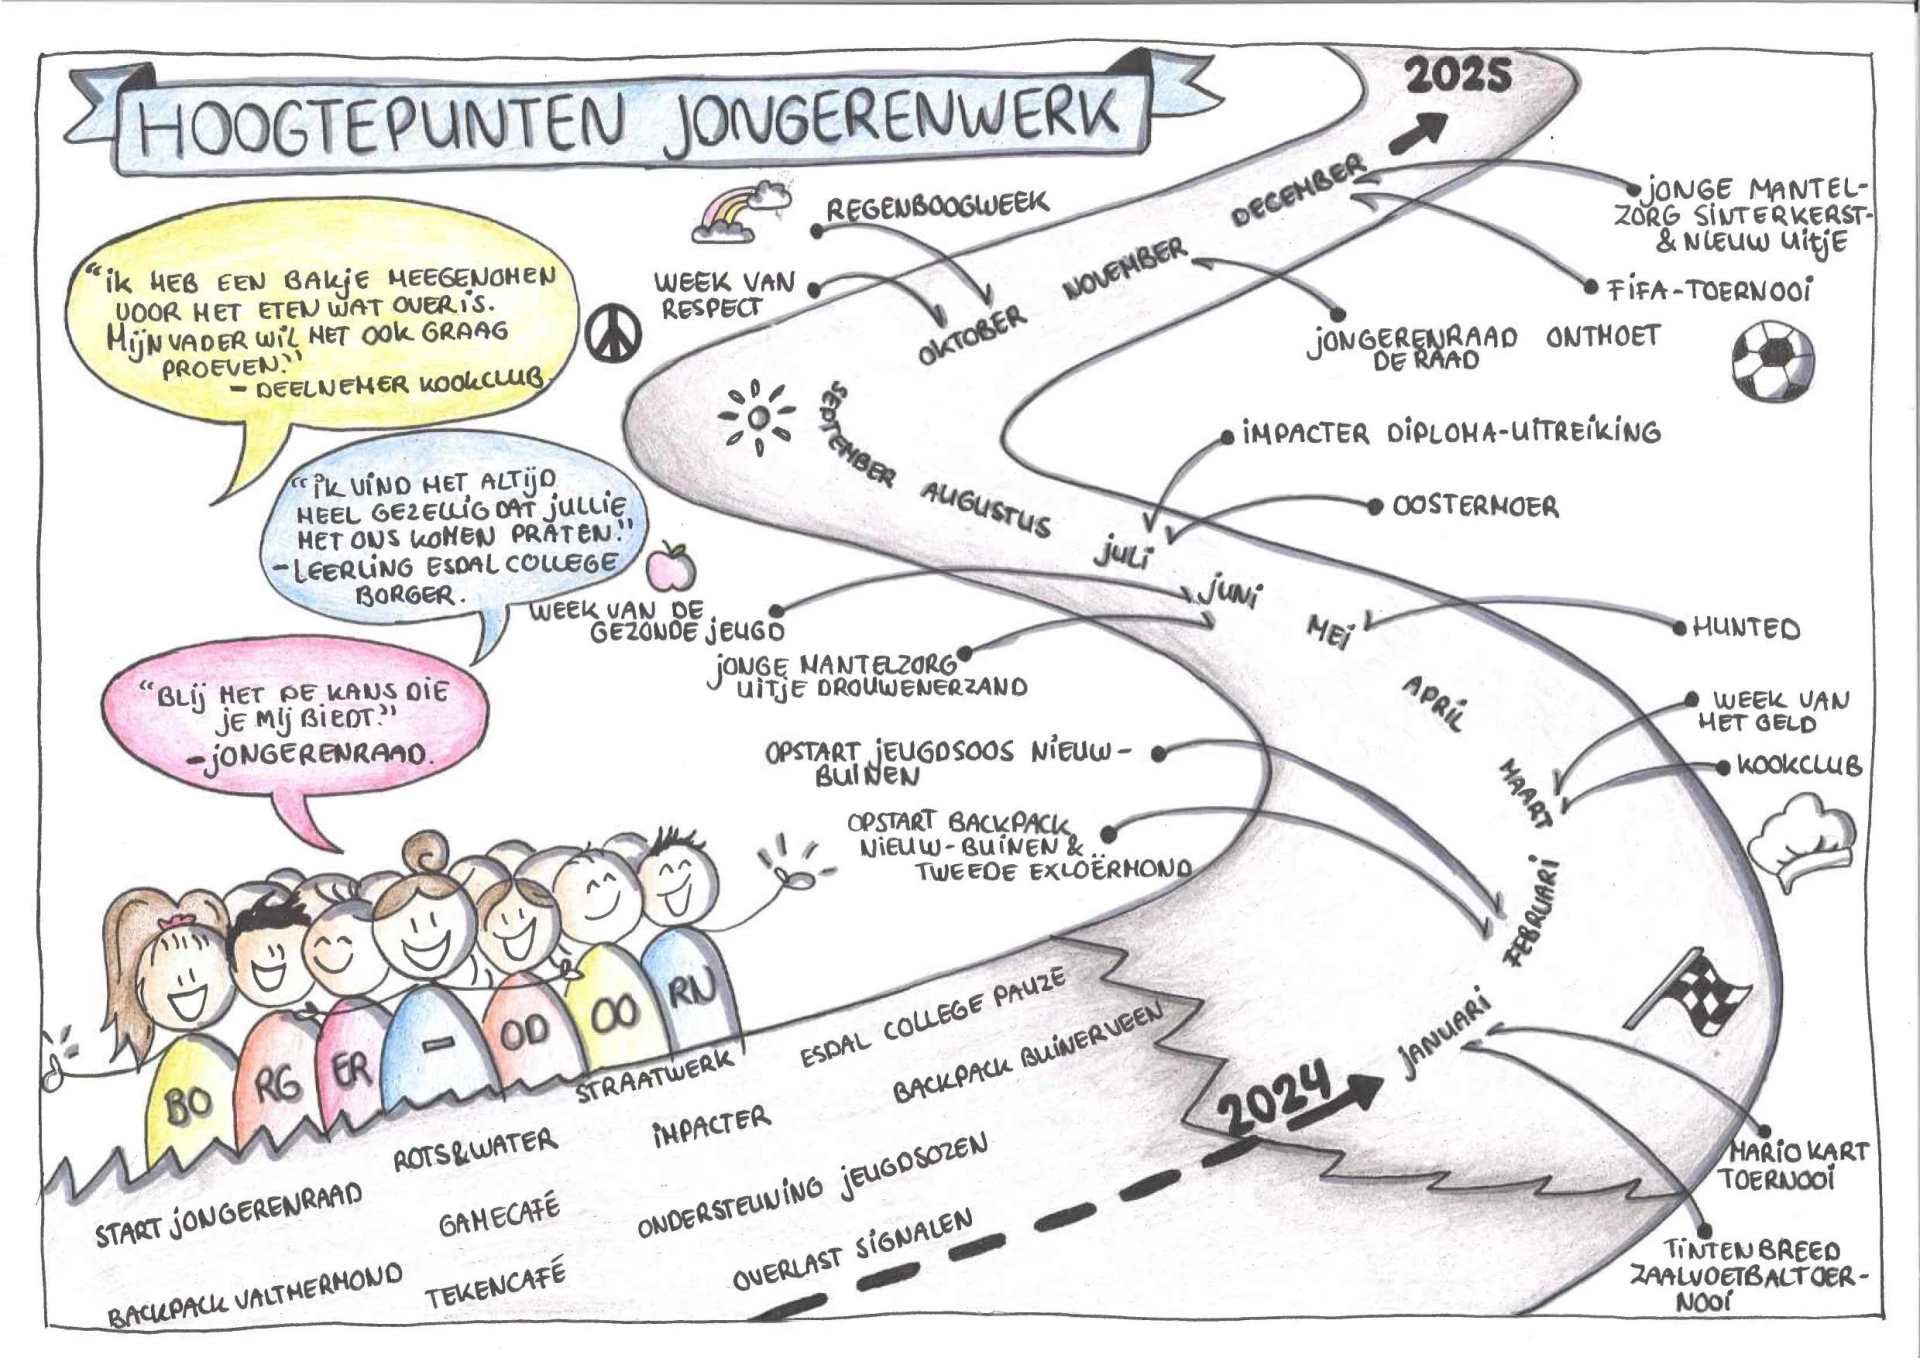 HOOGTEPUNTEN JONGERENWERK
2025
DECEMBER
NOVEMBER
OKTOBER
SEPTEMBER
AUGUSTUS
JULI
JUNI
MEI
APRIL
MAART
FEBRUARI
JANUARI
2024
"IK HEB EEN BAKJE MEEGENOMEN
VOOR HET ETEN WAT OVER IS.
MIJN VADER WIL HET OOK GRAAG
PROEVEN."
- DEELNEMER KOOKCLUB
"IK VIND HET ALTIJD
HEEL GEZELLIG DAT JULLIE
MET ONS KOMEN PRATEN."
- LEERLING ESDAL COLLEGE
BORGER.
"BLIJ MET DE KANS DIE
JE MIJ BIEDT."
- JONGERENRAAD.
REGENBOOGWEEK
WEEK VAN
RESPECT
JONGE MANTEL-
ZORG SINTERKERST-
& NIEUW UITJE
FIFA-TOERNOOI
JONGERENRAAD ONTMOET
DE RAAD
IMPACTER DIPLOMA-UITREIKING
OOSTERMOER
WEEK VAN DE
GEZONDE JEUGD
JONGE MANTELZORG
UITJE DROUWENERZAND
HUNTED
WEEK VAN
HET GELD
KOOKCLUB
OPSTART JEUGDSOOS NIEUW-
BUINEN
OPSTART BACKPACK
NIEUW-BUINEN &
TWEEDE EXLOËRMOND
MARIO KART
TOERNOOI
TINTEN BREED
ZAALVOETBALTOER-
NOOI
BO RG ER - OD OO RN
STRAATWERK
ESDAL COLLEGE PAUZE
BACKPACK BUINERVEEN
ROTS & WATER
IMPACTER
START JONGERENRAAD
GAMECAFÉ
ONDERSTEUNING JEUGDSOZEN
BACKPACK VALTHERMOND
TEKENCAFÉ
OVERLAST SIGNALEN